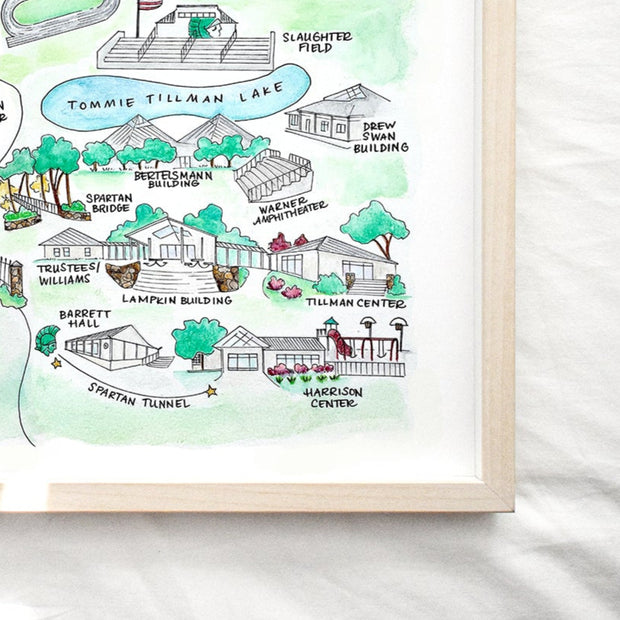 SLAUGHTER
FIELD
TOMMIE TILLMAN LAKE
DREW
SWAN
BUILDING
BERTELSMANN
BUILDING
SPARTAN
BRIDGE
WARNER
AMPHITHEATER
TRUSTEES/
WILLIAMS
LAMPKIN BUILDING
TILLMAN CENTER
BARRETT
HALL
SPARTAN TUNNEL
HARRISON
CENTER